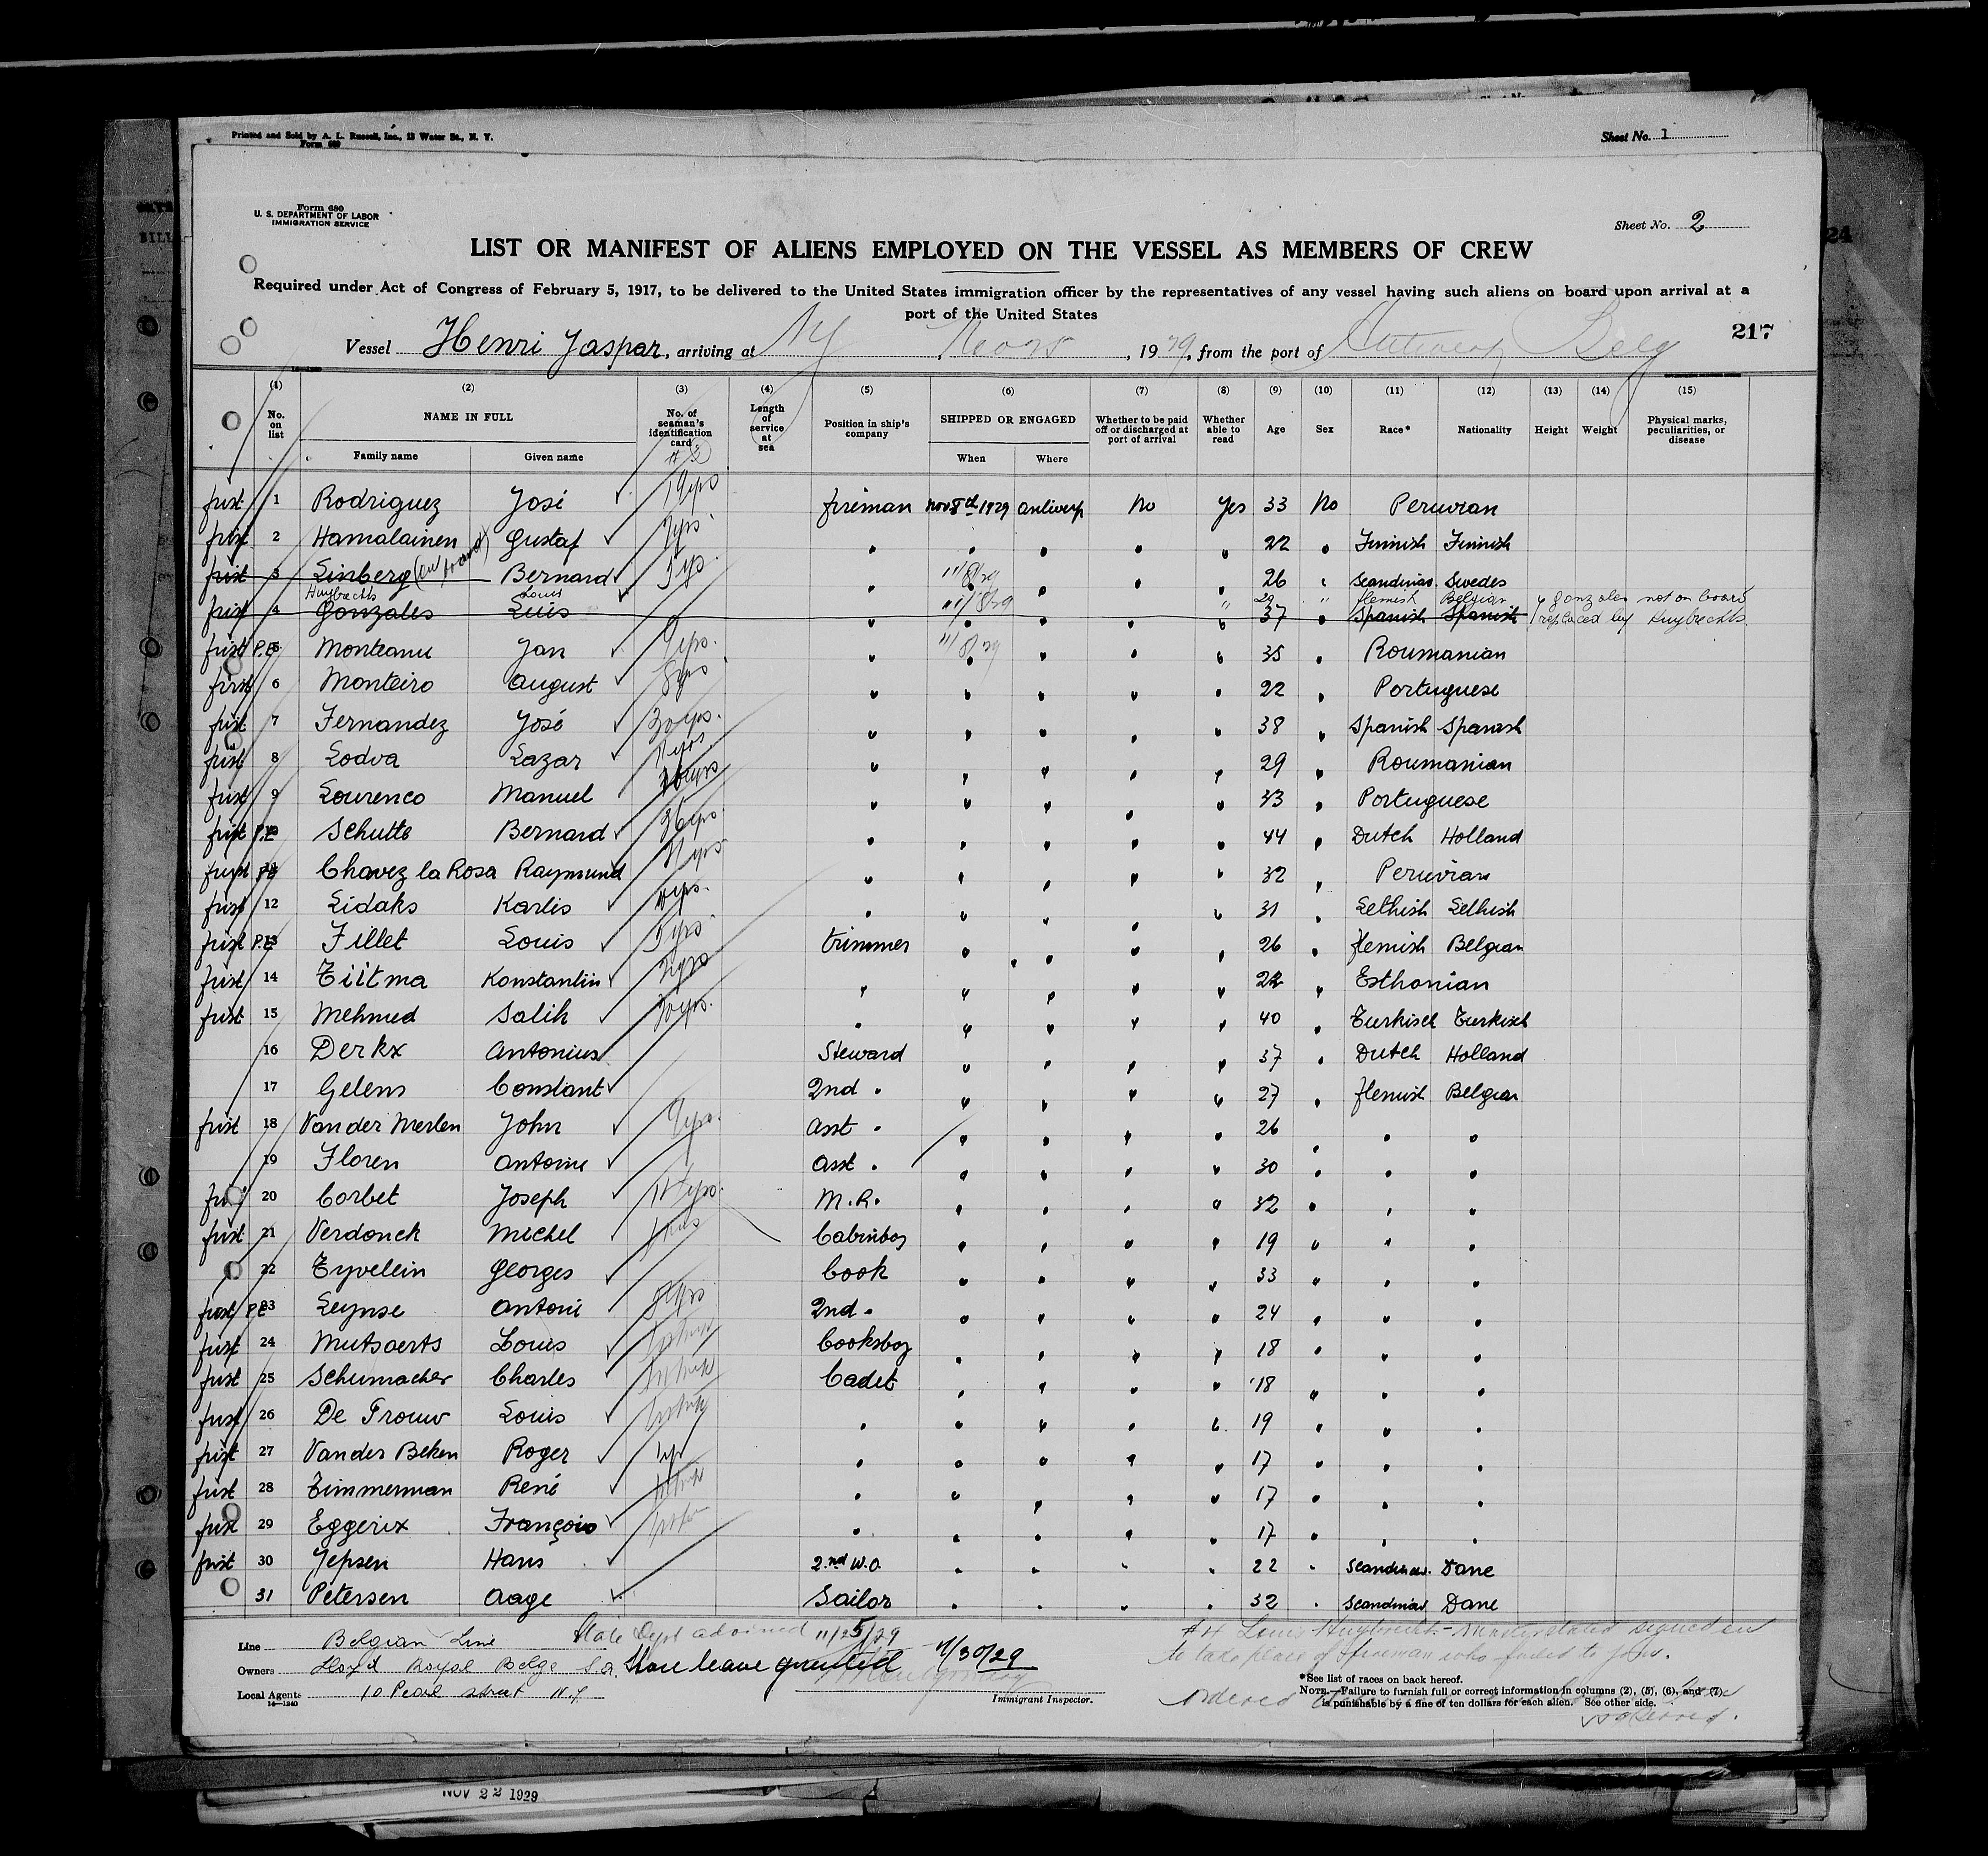 Printed and Sold by A. L. Russell, Inc., 13 Water St., N. Y.
Form 680
Sheet No. 1
Form 680
U. S. DEPARTMENT OF LABOR
IMMIGRATION SERVICE
Sheet No. 2
LIST OR MANIFEST OF ALIENS EMPLOYED ON THE VESSEL AS MEMBERS OF CREW
Required under Act of Congress of February 5, 1917, to be delivered to the United States immigration officer by the representatives of any vessel having such aliens on board upon arrival at a
port of the United States
217
Vessel Henri Jaspar, arriving at NY Nov 25, 1929, from the port of Antwerp Belg
(1) (2) (3) (4) (5) (6) (7) (8) (9) (10) (11) (12) (13) (14) (15)
No. on list NAME IN FULL Family name Given name No. of seaman's identification card Length of service at sea Position in ship's company SHIPPED OR ENGAGED When Where Whether to be paid off or discharged at port of arrival Whether able to read Age Sex Race* Nationality Height Weight Physical marks, peculiarities, or disease
first 1 Rodriguez José fireman Nov 8th 1929 Antwerp No Yes 33 No Peruvian
first 2 Hamalainen Gustaf 7yrs " " " " " 22 " Finnish Finnish
first 3 Linberg (on board) Bernard 5yrs " 11/8/29 " " " 26 " Scandinav. Swedes
Huybrechts Louis 11/8/29 " 29 " flemish Belgian Gonzales not on board
first 4 Gonzales Luis " " " " " 37 " Spanish Spanish replaced by Huybrechts
first P.E 5 Monteanu Jan 9yrs. " 11/8/29 " " " 35 " Roumanian
first 6 Monteiro August 8yrs " " " " " 22 " Portuguese
first 7 Fernandez José 20yrs. " " " " " 38 " Spanish Spanish
first 8 Lodva Lazar " " " " " 29 " Roumanian
first 9 Lourenco Manuel " " " " " 33 " Portuguese
first P.E 10 Schutte Bernard 26yrs. " " " " " 44 " Dutch Holland
first P.E 11 Chavez la Rosa Raymund " " " " " 32 " Peruvian
first 12 Lidaks Karlis " " " " " 31 " Lethish Lethish
first P.E 13 Fillet Louis 5yrs trimmer " " " " 26 " flemish Belgian
first 14 Tiitma Konstantin " " " " " 22 " Esthonian
first 15 Mehmed Salih 20yrs. " " " " " 40 " Turkisch Turkisch
16 Derkx Antonius Steward " " " " 37 " Dutch Holland
17 Gelens Constant 2nd " " " " " 27 " flemish Belgian
first 18 Van der Merlen John 9yrs. asst " " " " " 26 " " "
19 Floren Antoine asst " " " " " 30 " " "
first 20 Corbet Joseph M.R. " " " " 32 " " "
first 21 Verdonck Michel Cabinboy " " " " 19 " " "
22 Tyvelein Georges Cook " " " " 33 " " "
first P.E 23 Leynse Antoni 2nd " " " " " 24 " " "
first 24 Mutsaerts Louis Cooksboy " " " " 18 " " "
first 25 Schumacher Charles Cadet " " " " 18 " " "
first 26 De Trouw Louis " " " " " 19 " " "
first 27 Van der Beken Roger 1yr " " " " " 17 " " "
first 28 Timmerman René " " " " " 17 " " "
first 29 Eggerix François " " " " " 17 " " "
first 30 Jepsen Hans 2.nd W.O. " " " " 22 " Scandinav. Dane
31 Petersen Aage Sailor " " " " 32 " Scandinav Dane
Line Belgian Line State Dept advised 11/25/29
Owners Lloyd Royal Belge S a Shore leave granted 11/30/29
Local Agents 10 Pearl street N.Y.
14—1240
Immigrant Inspector.
#4 Louis Huybrechts - Master stated signed on
to take place of fireman who failed to join.
*See list of races on back hereof.
NOTE.—Failure to furnish full or correct information in columns (2), (5), (6), and (7)
is punishable by a fine of ten dollars for each alien. See other side.
ordered
NOV 22 1929
24